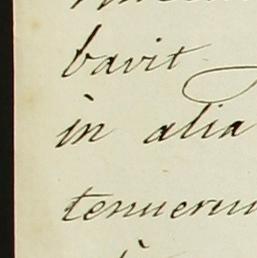 bavit
in alia
tenuerun